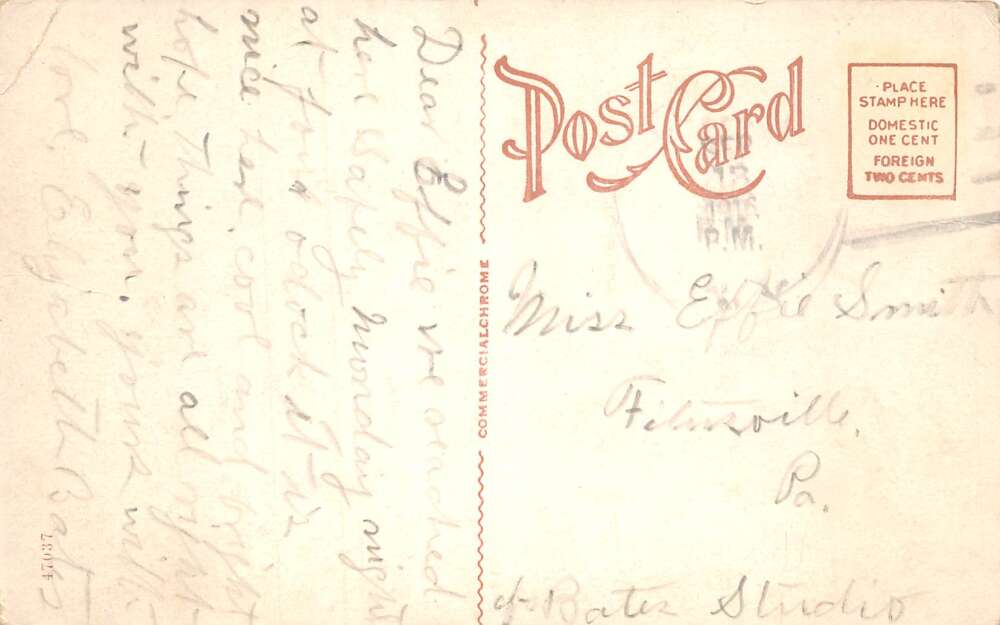 Dear Effie we reached
here safely Monday night
at four oclock it is
nice here cool and bright
hope things are all right
with you. yours with
love. Elizabeth Bates
47037
COMMERCIALCHROME
Post Card
PLACE
STAMP HERE
DOMESTIC
ONE CENT
FOREIGN
TWO CENTS
SEP
13
P.M.
Miss Effie Smith
Pa.
Bates Studio